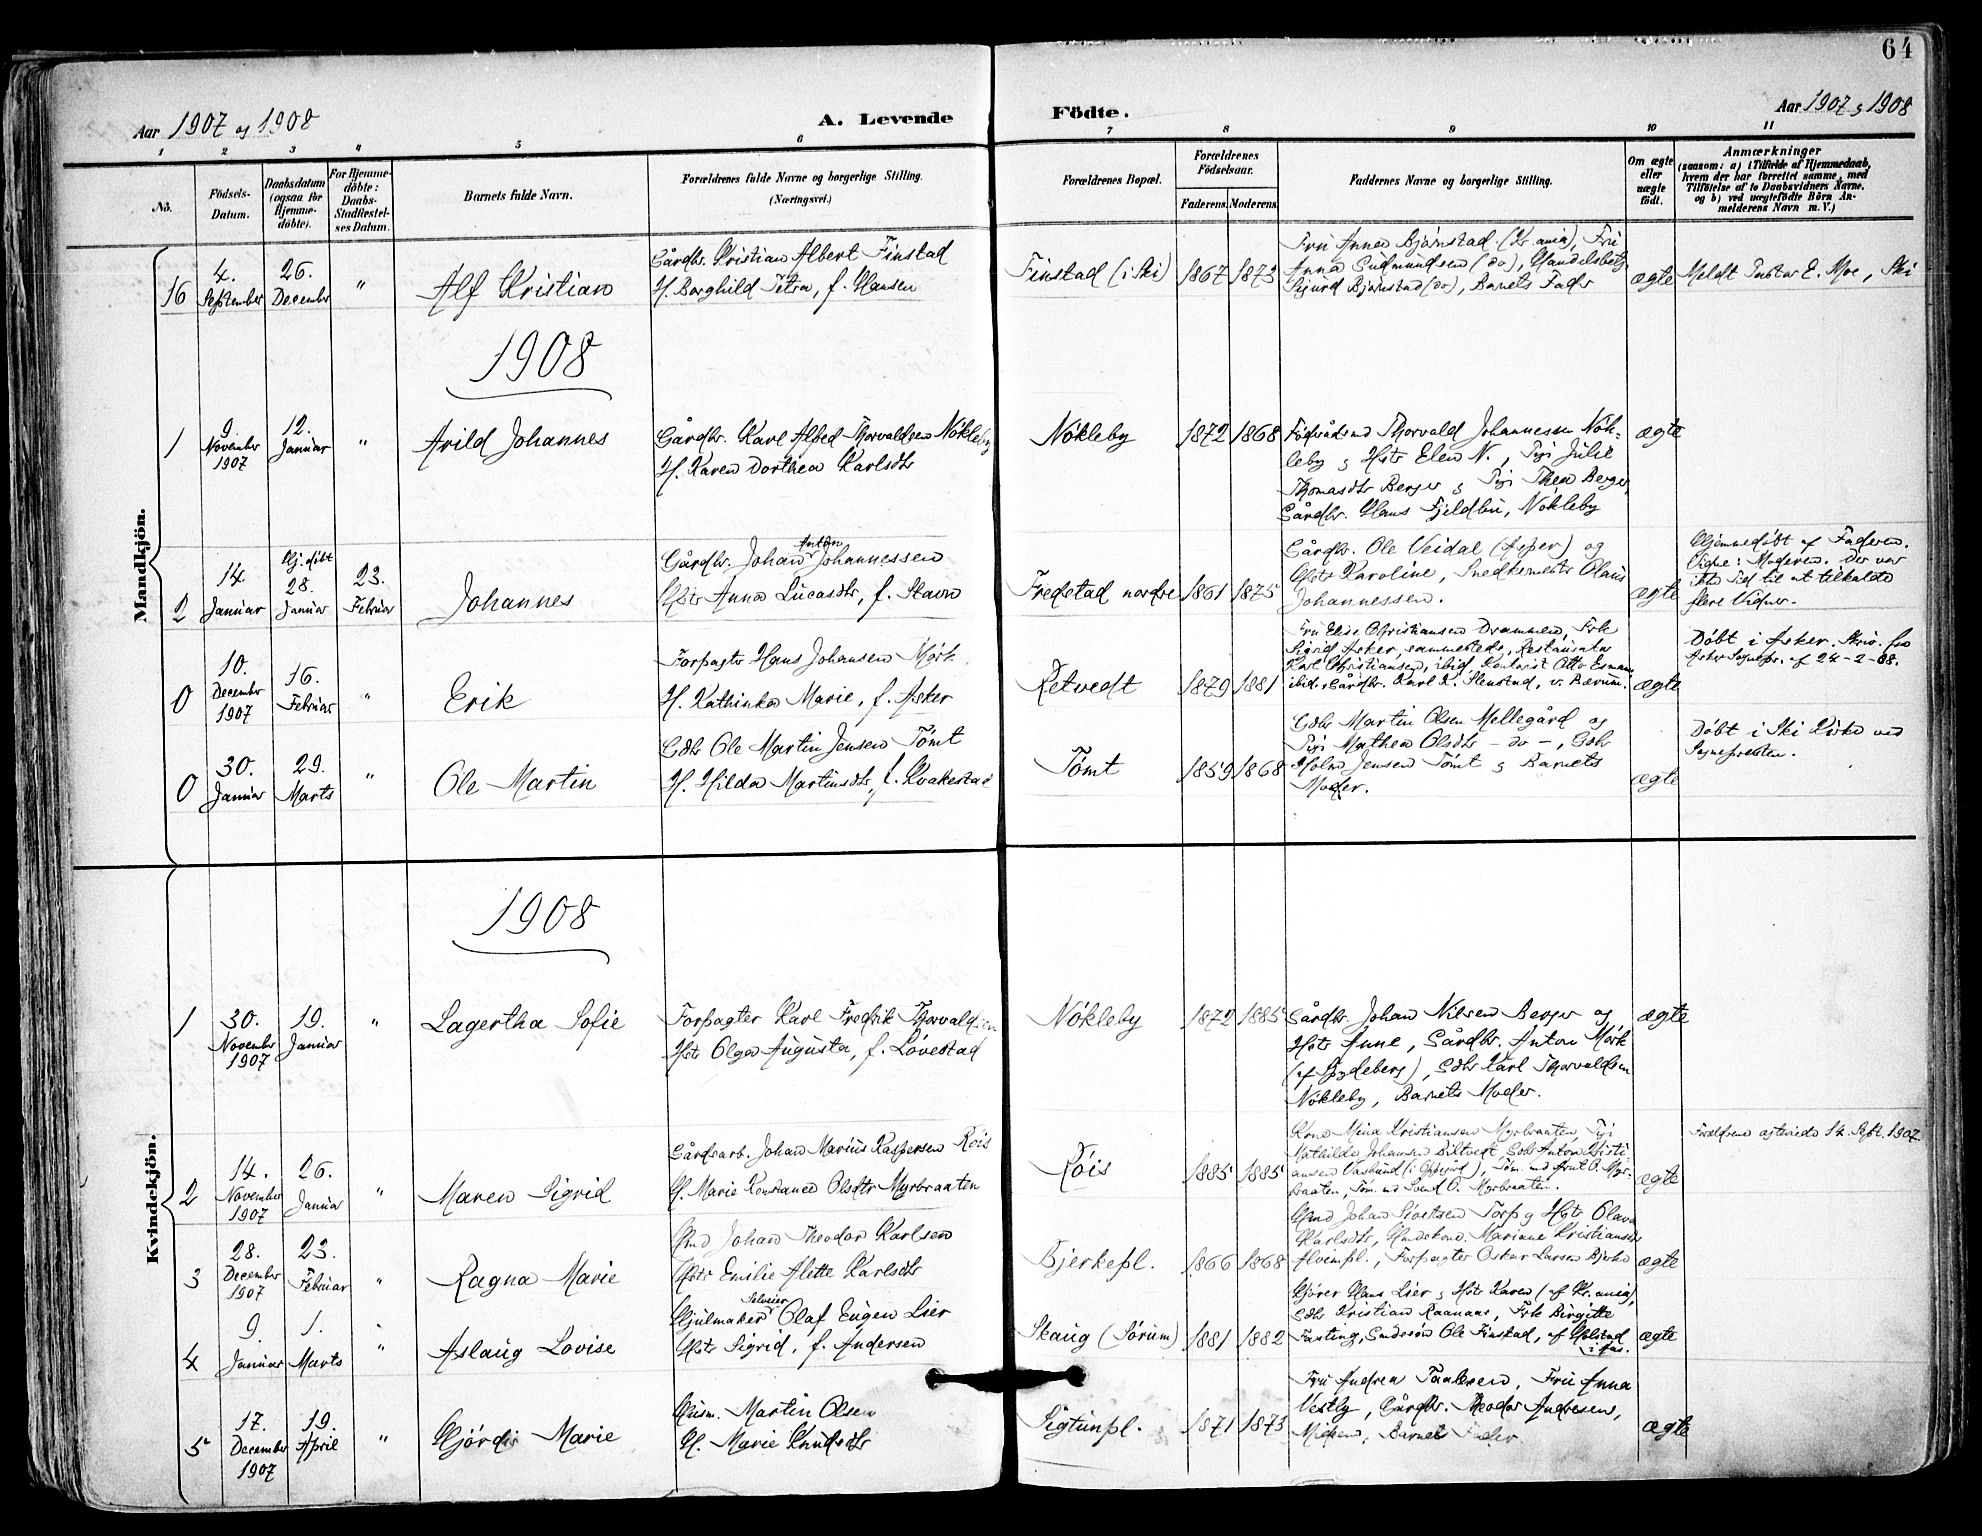 64
Aar 1907 og 1908
A. Levende
Födte.
Aar 1907 og 1908
1 2 3 4 5 6 7 8 9 10 11
No.
Födsels-Datum.
Daabsdatum (ogsaa for Hjemme-döbte).
For Hjemme-döbte: Daabs-Stadfæstel-ses Datum.
Barnets fulde Navn.
Forældrenes fulde Navne og borgerlige Stilling.
(Næringsvei.)
Forældrenes Bopæl.
Forældrenes Födselsaar.
Faderens. Moderens.
Faddernes Navne og borgerlige Stilling.
Om ægte eller uægte födt.
Anmærkninger
(saasom: a) i Tilfælde af Hjemmedaab,
hvem der har forrettet samme, med
Tilföielse af to Daabsvidners Navne.
og b) ved uægtefödte Börn An-
melderens Navn m. V.)
Mandkjön.
16
4. September
26. December
"
Alf Kristian
Gårdbr. Kristian Albert Finstad
H. Borghild Petra, f. Hansen
Finstad (i Ski)
1867 1873
Fru Anna Bjørnstad (Kr.ania), Fru
Anna Gudmundsen (do), Handelsbetj.
Sigurd Bjørnstad (do), Barnets Fader
ægte
Meldt Gustav E. Moe, Ski
1908
1
9. November 1907
12. Januar
"
Arild Johannes
Gårdbr. Karl Alfred Thorvaldsen Nökleby
H. Karen Dorthea Karlsdtr
Nökleby
1872 1868
Födrådsmd Thorvald Johannesen Nök-
leby og Hstr Elen N., Pige Julie
Thomasdtr Berger og Pige Thea Berger,
Gårdbr. Hans Fjeldbu, Nökleby
ægte
2
14 Januar
Hj.døbt 28. Januar
23. Februar
Johannes
Gårdbr. Johan Anton Johannessen
Hstr Anna Lucasdtr, f. Stavn
Fredstad nordre
1861 1875
Gårdbr. Ole Veidal (Asper) og
Hstr Karoline, Snedkermester Olaus
Johannessen.
ægte
Hjemmedøbt af Faderen.
Vidne: Moderen. Der var
ikke Tid til at tilkalde
flere Vidner.
0
10. December 1907
16. Februar
"
Erik
Forpagter Hans Johansen Mørk
H. Kathinka Marie, f. Asker
Retvedt
1879 1881
Fru Elise Christiansen Drammen, Frk
Sigrid Asker, sammesteds, Restauratør
Karl Christiansen, ibid, Kontorist Otto Esmann
ibid., Gårdbr. Karl K. Stenstad, v. Bærum.
ægte
Døbt i Asker. Skriv. fra
Asker Sognepr. af 24-2-08.
0
30. Januar
29. Marts
"
Ole Martin
Gdbr Ole Martin Jensen Tömt
H. Hilda Martinsdtr, f. Kvakestad
Tömt
1859 1868
Gdbr Martin Olsen Mellegård og
Pige Mathea Olsdtr - do -, Gdbr
Holm Jensen Tömt og Barnets
Moder.
ægte
Döbt i Ski Kirke ved
Sognepresten.
Kvindekjön.
1908
1
30. November 1907
19. Januar
"
Lagertha Sofie
Forpagter Karl Fredrik Thorvaldsen
Hstr Olga Augusta, f. Løvestad
Nökleby
1872 1885
Gårdbr. Johan Nilsen Berger og
Hstr Anne, Gårdbr. Anton Mörk
(af Spydeberg), Gdbr Karl Thorvaldsen
Nökleby, Barnets Moder.
ægte
2
14. November 1907
26. Januar
"
Maren Sigrid
Gårdsarb. Johan Marius Kaspersen Röis
H. Marie Konstance Olsdtr Myrbraaten
Röis
1885 1885
Kone Mina Kristiansen Myrbraaten, Pige
Mathilde Johansen Diltvedt, Gdbr Anton Kristi-
ansen Vasbund (i Oppegård), Töm.md Arnt O. Myr-
braaten, Töm.md Svend O. Myrbraaten.
ægte
Forældrene ægteviede 14. Sept. 1907
3
28. December 1907
23. Februar
"
Ragna Marie
Hmd Johan Theodor Karlsen
Hstr Emilie Alette Karlsdtr
Bjerkepl.
1866 1868
Hmd Johan Sivertsen Torp og Hstr Olava
Karlsdtr, Hmdskone Mariane Kristiansdtr
Alvimpl., Forpagter Oskar Larsen Bjerke
ægte
4
9. Januar
1. Marts
"
Aslaug Lovise
Hjulmaker Selveier Olaf Eugen Lier
Hstr Sigrid, f. Andersen
Skaug (Sørum)
1881 1882
Kjører Hans Lier og Hstr Karen (af Kr.ania),
Gdbr Kristian Raanaas, Frk Birgitte
Fasting, Smedesön Ole Finstad, af Holstad
i Aas.
ægte
5
17. December 1907
19. April
"
Hjördis Marie
Husm. Martin Olsen
H. Marie Knudsdtr
Sigtunpl.
1871 1873
Fru Andrea Paulsen, Fru Anna
Vestby, Gårdbr. Theodor Andresen,
Barnets Fader.
ægte